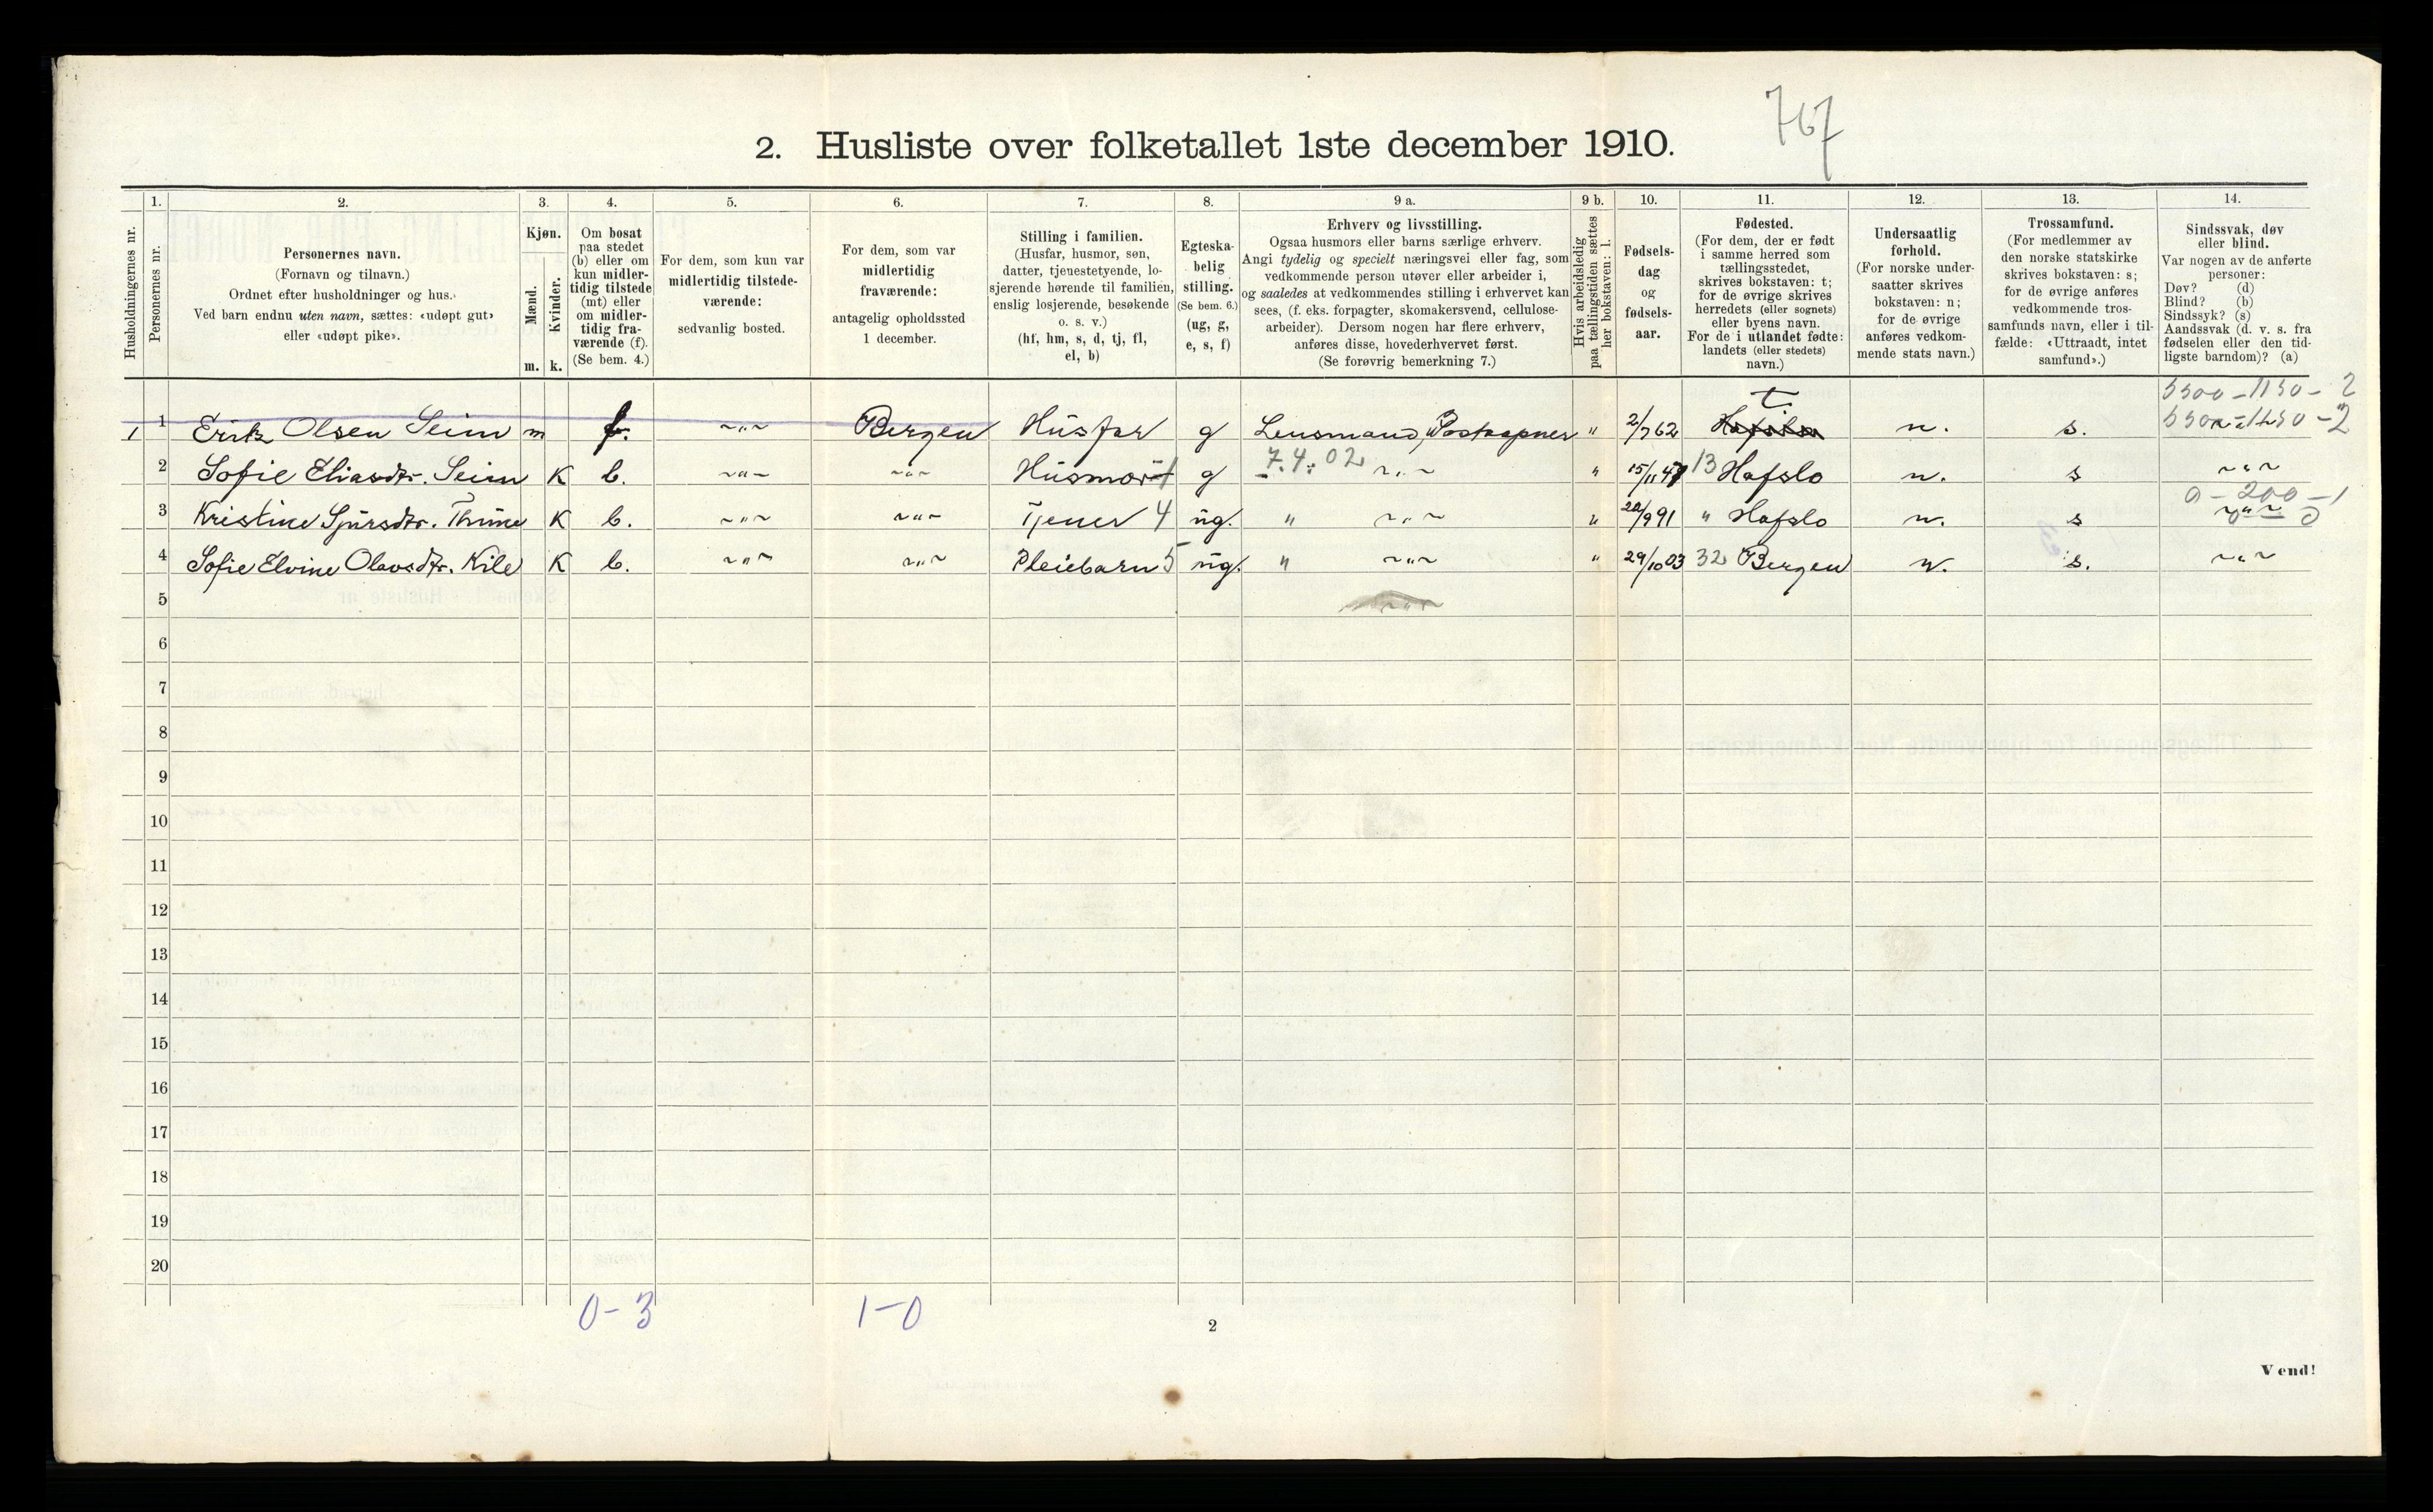 767
2. Husliste over folketallet 1ste december 1910.
Husholdningernes nr.
1.
Personernes nr.
2.
Personernes navn.
(Fornavn og tilnavn.)
Ordnet efter husholdninger og hus.
Ved barn endnu uten navn, sættes: «udøpt gut»
eller «udøpt pike».
3.
Kjøn.
Mænd.
Kvinder.
m. k.
4.
Om bosat
paa stedet
(b) eller om
kun midler-
tidig tilstede
(mt) eller
om midler-
tidig fra-
værende (f).
(Se bem. 4.)
5.
For dem, som kun var
midlertidig tilstede-
værende:
sedvanlig bosted.
6.
For dem, som var
midlertidig
fraværende:
antagelig opholdssted
1 december.
7.
Stilling i familien.
(Husfar, husmor, søn,
datter, tjenestetyende, lo-
sjerende hørende til familien,
enslig losjerende, besøkende
o. s. v.)
(hf, hm, s, d, tj, fl,
el, b)
8.
Egteska-
belig
stilling.
(Se bem. 6.)
(ug, g,
e, s, f)
9 a.
Erhverv og livsstilling.
Ogsaa husmors eller barns særlige erhverv.
Angi tydelig og specielt næringsvei eller fag, som
vedkommende person utøver eller arbeider i,
og saaledes at vedkommendes stilling i erhvervet kan
sees, (f. eks. forpagter, skomakersvend, cellulose-
arbeider). Dersom nogen har flere erhverv,
anføres disse, hovederhvervet først.
(Se forøvrig bemerkning 7.)
9 b.
Hvis arbeidsledig
paa tællingstiden sættes
her bokstaven: l.
10.
Fødsels-
dag
og
fødsels-
aar.
11.
Fødested.
(For dem, der er født
i samme herred som
tællingsstedet,
skrives bokstaven: t;
for de øvrige skrives
herredets (eller sognets)
eller byens navn.
For de i utlandet fødte:
landets (eller stedets)
navn.)
12.
Undersaatlig
forhold.
(For norske under-
saatter skrives
bokstaven: n;
for de øvrige
anføres vedkom-
mende stats navn.)
13.
Trossamfund.
(For medlemmer av
den norske statskirke
skrives bokstaven: s;
for de øvrige anføres
vedkommende tros-
samfunds navn, eller i til-
fælde: «Uttraadt, intet
samfund».)
14.
Sindssvak, døv
eller blind.
Var nogen av de anførte
personer:
Døv? (d)
Blind? (b)
Sindssyk? (s)
Aandssvak (d. v. s. fra
fødselen eller den tid-
ligste barndom)? (a)
t. 5500-1150-2
1 1 Erik Olsen Seim m f. ~"~ Bergen Husfar g Lensmand, Postaapner " 2/7 62 Hafslo n. s. -1150-2
2 Sofie Eliasdtr. Seim K b. ~"~ ~"~ Husmor g 7.4.02 ~"~ " 15/11 47 13 Hafslo n. s ~"~
0-200-1
3 Kristine Sjursdtr. Thune K b. ~"~ ~"~ Tjener 4 ug. " ~"~ " 20/9 91 " Hafslo n. s ~"~ 0
4 Sofie Elvine Olavsdtr. Kile K b. ~"~ ~"~ Pleiebarn 5 ug. " ~"~ " 29/10 03 32 Bergen n. s. ~"~
5 ~"~
6
7
8
9
10
11
12
13
14
15
16
17
18
19
20
0-3 1-0
2
Vend!